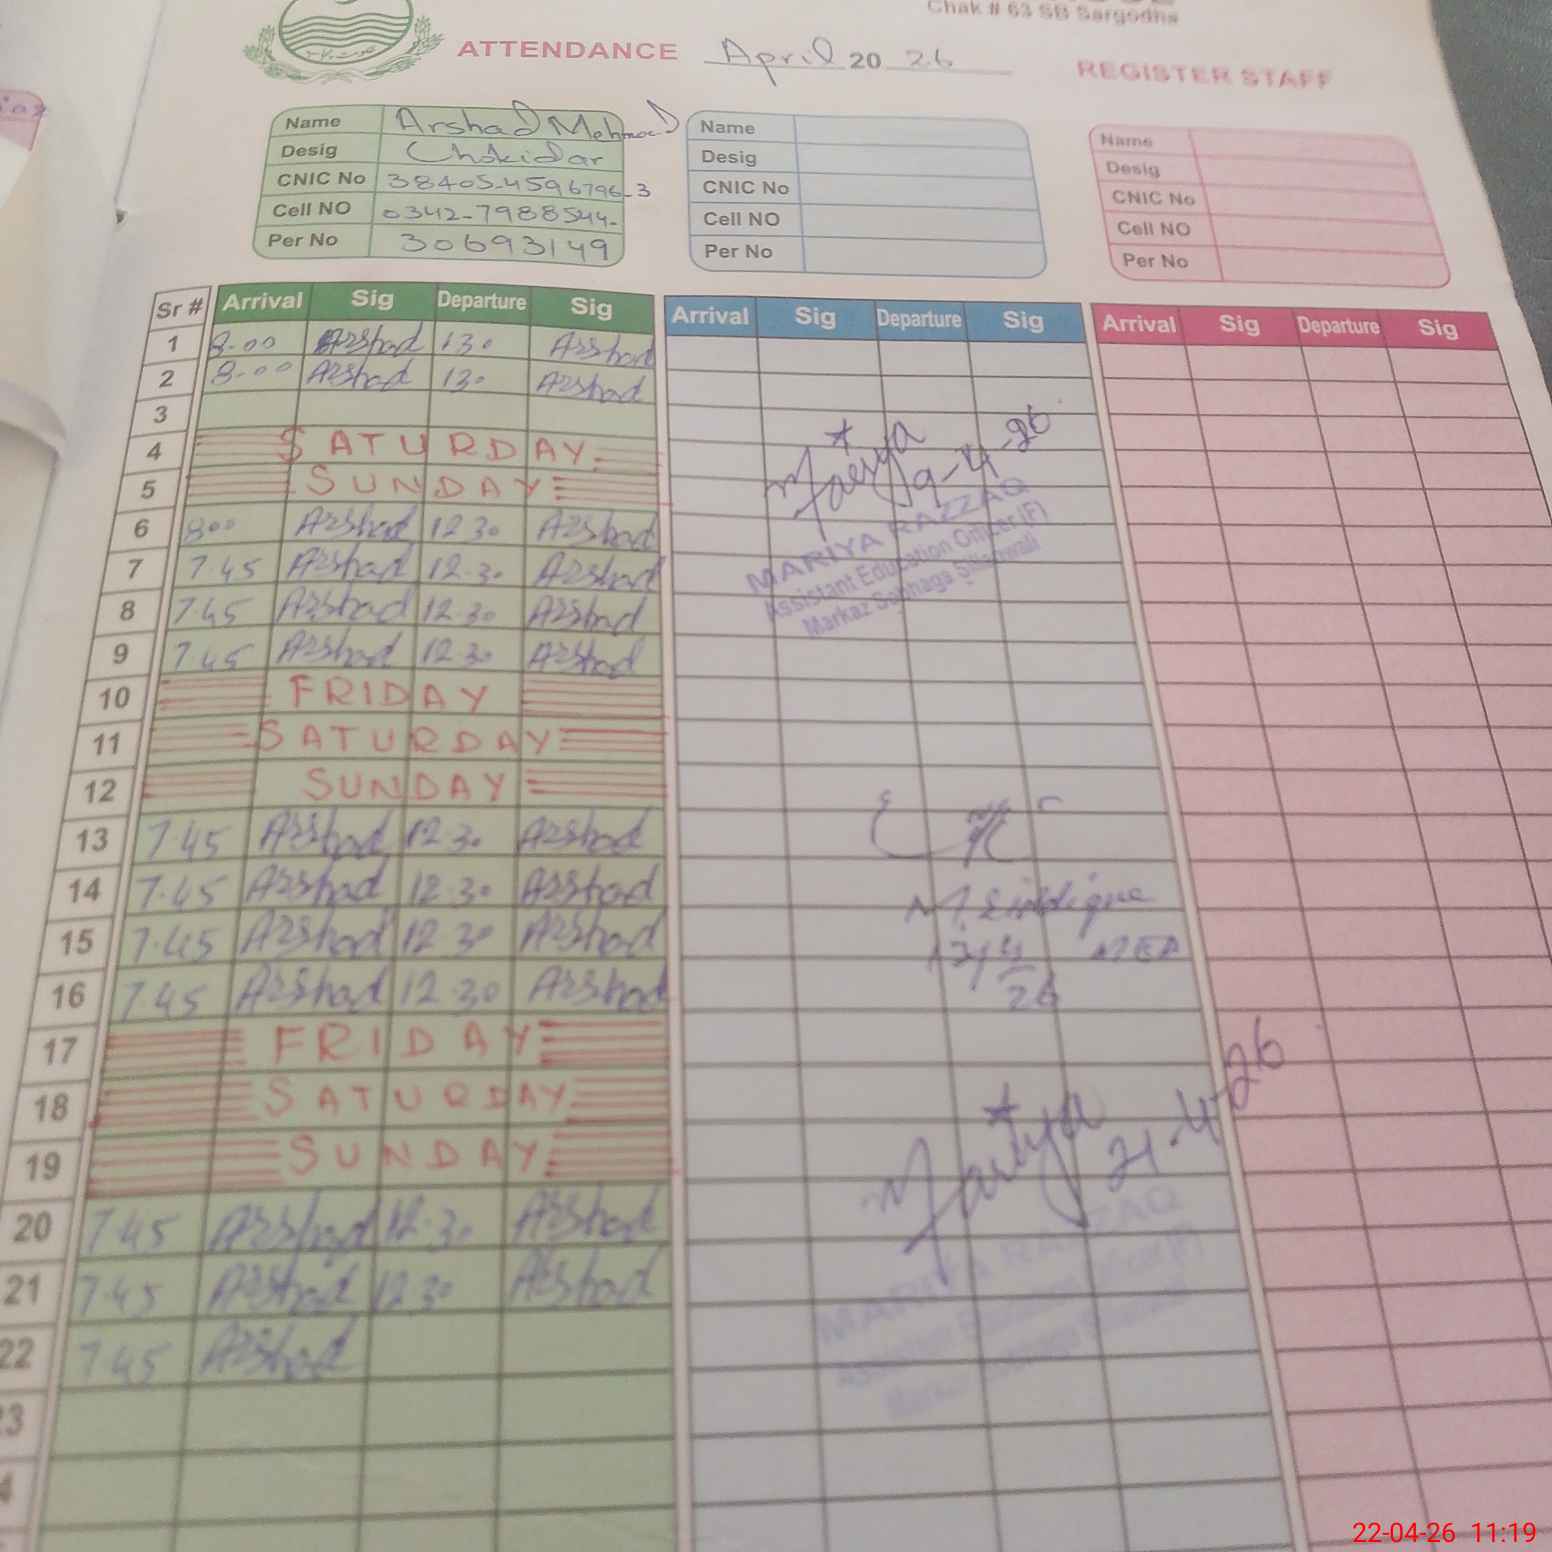 Chak # 63 SB Sargodha
ATTENDANCE April 20 26 REGISTER STAFF
Name Arshad Mehmood
Desig Chokidar
CNIC No 38405-4596796-3
Cell NO 0342-7988544-
Per No 30693149
Name
Desig
CNIC No
Cell NO
Per No
Name
Desig
CNIC No
Cell NO
Per No
Sr # Arrival Sig Departure Sig Arrival Sig Departure Sig Arrival Sig Departure Sig
1 8-00 Arshad 130 Arshad
2 8-00 Arshad 130 Arshad
3
4 SATURDAY
5 SUNDAY
6 800 Arshad 12 30 Arshad
7 7.45 Arshad 12.30 Arshad
8 7.45 Arshad 12.30 Arshad
9 7 45 Arshad 12 30 Arshad
10 FRIDAY
11 SATURDAY
12 SUNDAY
13 7.45 Arshad 12 30 Arshad
14 7.45 Arshad 12.30 Arshad
15 7.45 Arshad 12.30 Arshad
16 7.45 Arshad 12.30 Arshad
17 FRIDAY
18 SATURDAY
19 SUNDAY
20 7.45 Arshad 12.30 Arshad
21 7.45 Arshad 12 30 Arshad
22 7.45 Arshad
Mariya 9-4-26
MARIYA RAZZAQ
Assistant Education Officer (F)
Markaz Sobhaga Sillanwali
Mariya 21-4-26
MARIYA RAZZAQ
22-04-26 11:19